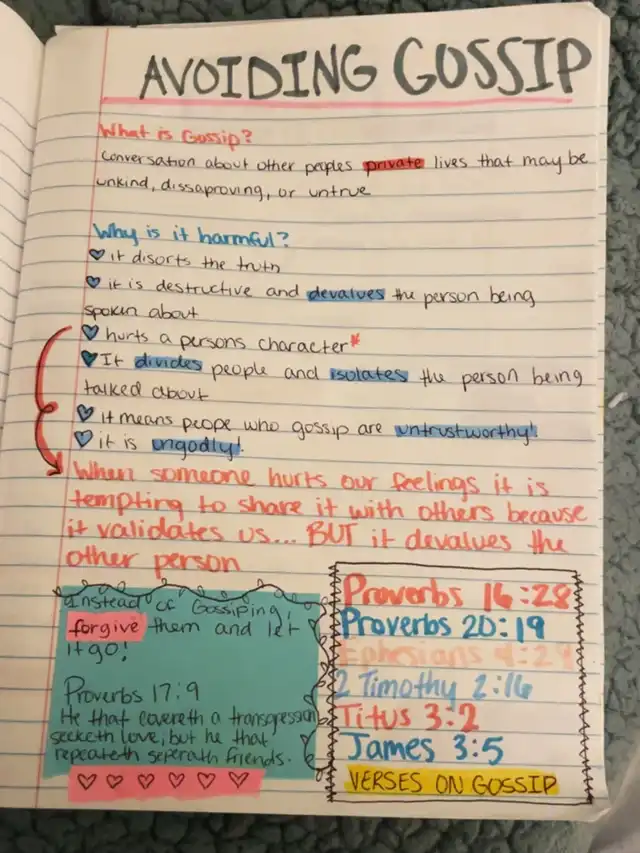 AVOIDING GOSSIP
What is Gossip?
Conversation about other peoples private lives that may be
unkind, dissaproving, or untrue
Why is it harmful?
it disorts the truth
it is destructive and devalues the person being
spokin about
hurts a persons character*
It divides people and isolates the person being
talked about
it means peope who gossip are untrustworthy!
it is ungodly!
When someone hurts our feelings it is
tempting to share it with others because
it validates us... BUT it devalues the
other person
Instead of Gossiping
forgive them and let
it go!
Proverbs 17:9
He that covereth a transgression
seeketh love, but he that
repeateth seperath friends.
Proverbs 16:28
Proverbs 20:19
Ephesians 4:29
2 Timothy 2:16
Titus 3:2
James 3:5
VERSES ON GOSSIP